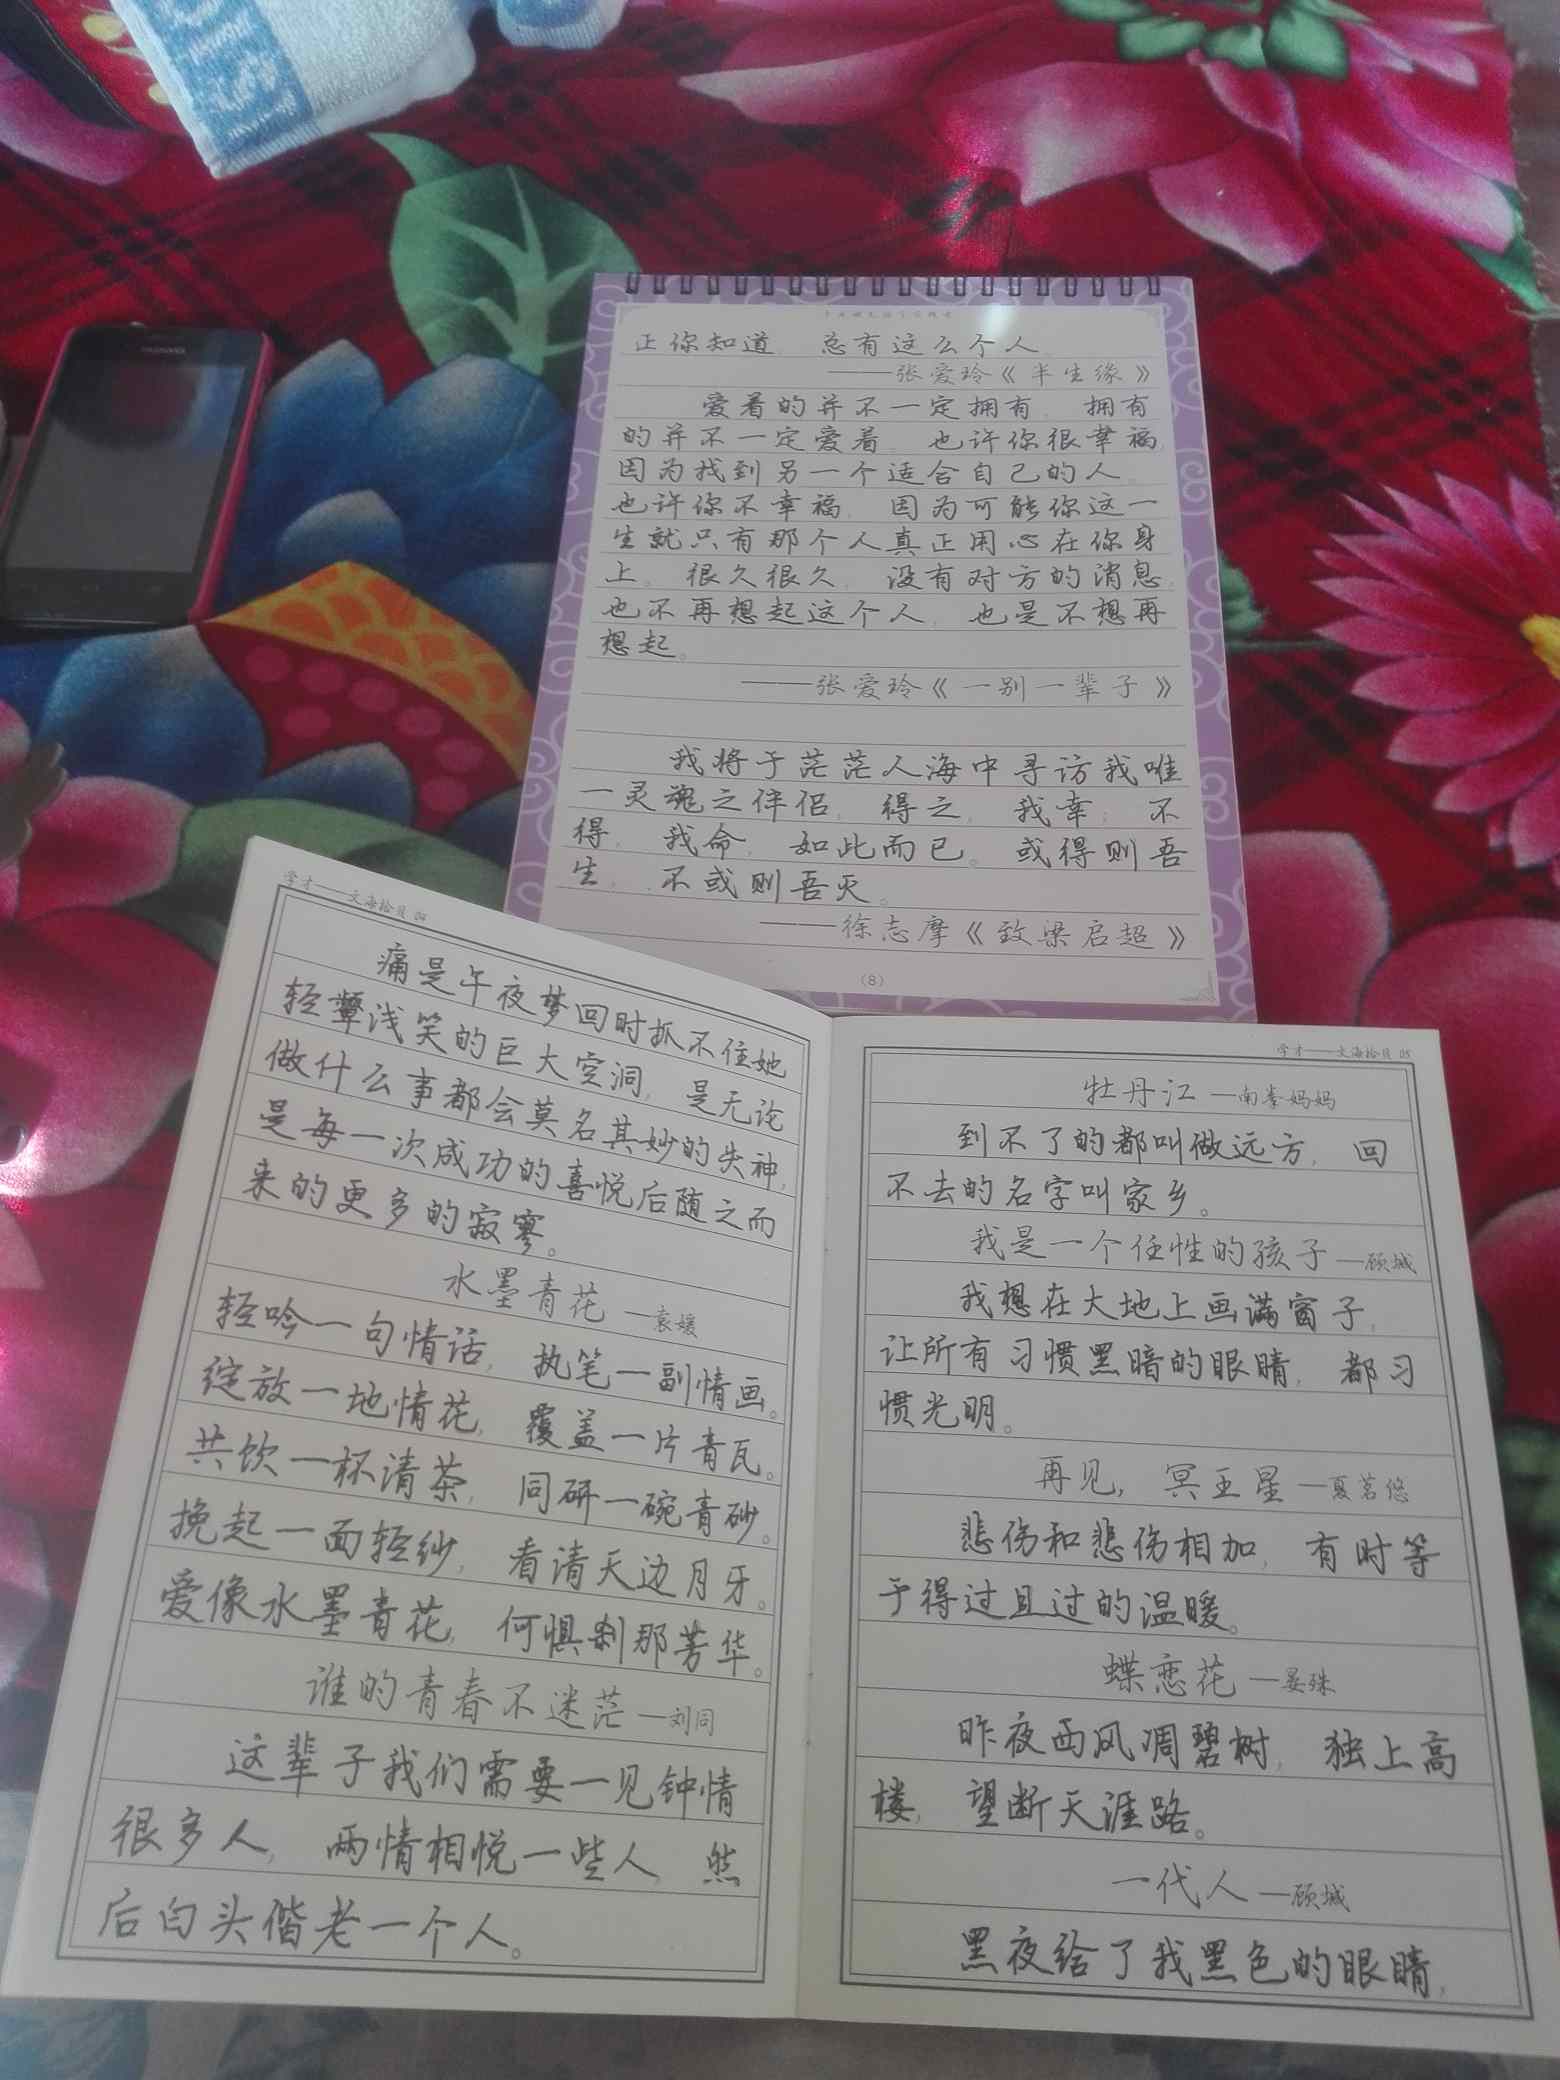 HUAWEI
正你知道，总有这么个人。
——张爱玲《半生缘》
爱着的并不一定拥有，拥有
的并不一定爱着。也许你很幸福，
因为找到另一个适合自己的人。
也许你不幸福，因为可能你这一
生就只有那个人真正用心在你身
上。很久很久，没有对方的消息，
也不再想起这个人，也是不想再
想起。
——张爱玲《一别一辈子》
我将于茫茫人海中寻访我唯
一灵魂之伴侣，得之，我幸；不
得，我命，如此而已。或得则吾
生，不或则吾灭。
——徐志摩《致梁启超》
(8)
学才——文海拾贝 04
痛是午夜梦回时抓不住她
轻颦浅笑的巨大空洞，是无论
做什么事都会莫名其妙的失神，
是每一次成功的喜悦后随之而
来的更多的寂寥。
水墨青花 —袁媛
轻吟一句情话，执笔一副情画。
绽放一地情花，覆盖一片青瓦。
共饮一杯清茶，同研一碗青砂。
挽起一面轻纱，看清天边月牙。
爱像水墨青花，何惧刹那芳华。
谁的青春不迷茫 —刘同
这辈子我们需要一见钟情
很多人，两情相悦一些人，然
后白头偕老一个人。
学才——文海拾贝 05
牡丹江 —南拳妈妈
到不了的都叫做远方，回
不去的名字叫家乡。
我是一个任性的孩子 —顾城
我想在大地上画满窗子，
让所有习惯黑暗的眼睛，都习
惯光明。
再见，冥王星 —夏茗悠
悲伤和悲伤相加，有时等
于得过且过的温暖。
蝶恋花 —晏殊
昨夜西风凋碧树，独上高
楼，望断天涯路。
一代人 —顾城
黑夜给了我黑色的眼睛，